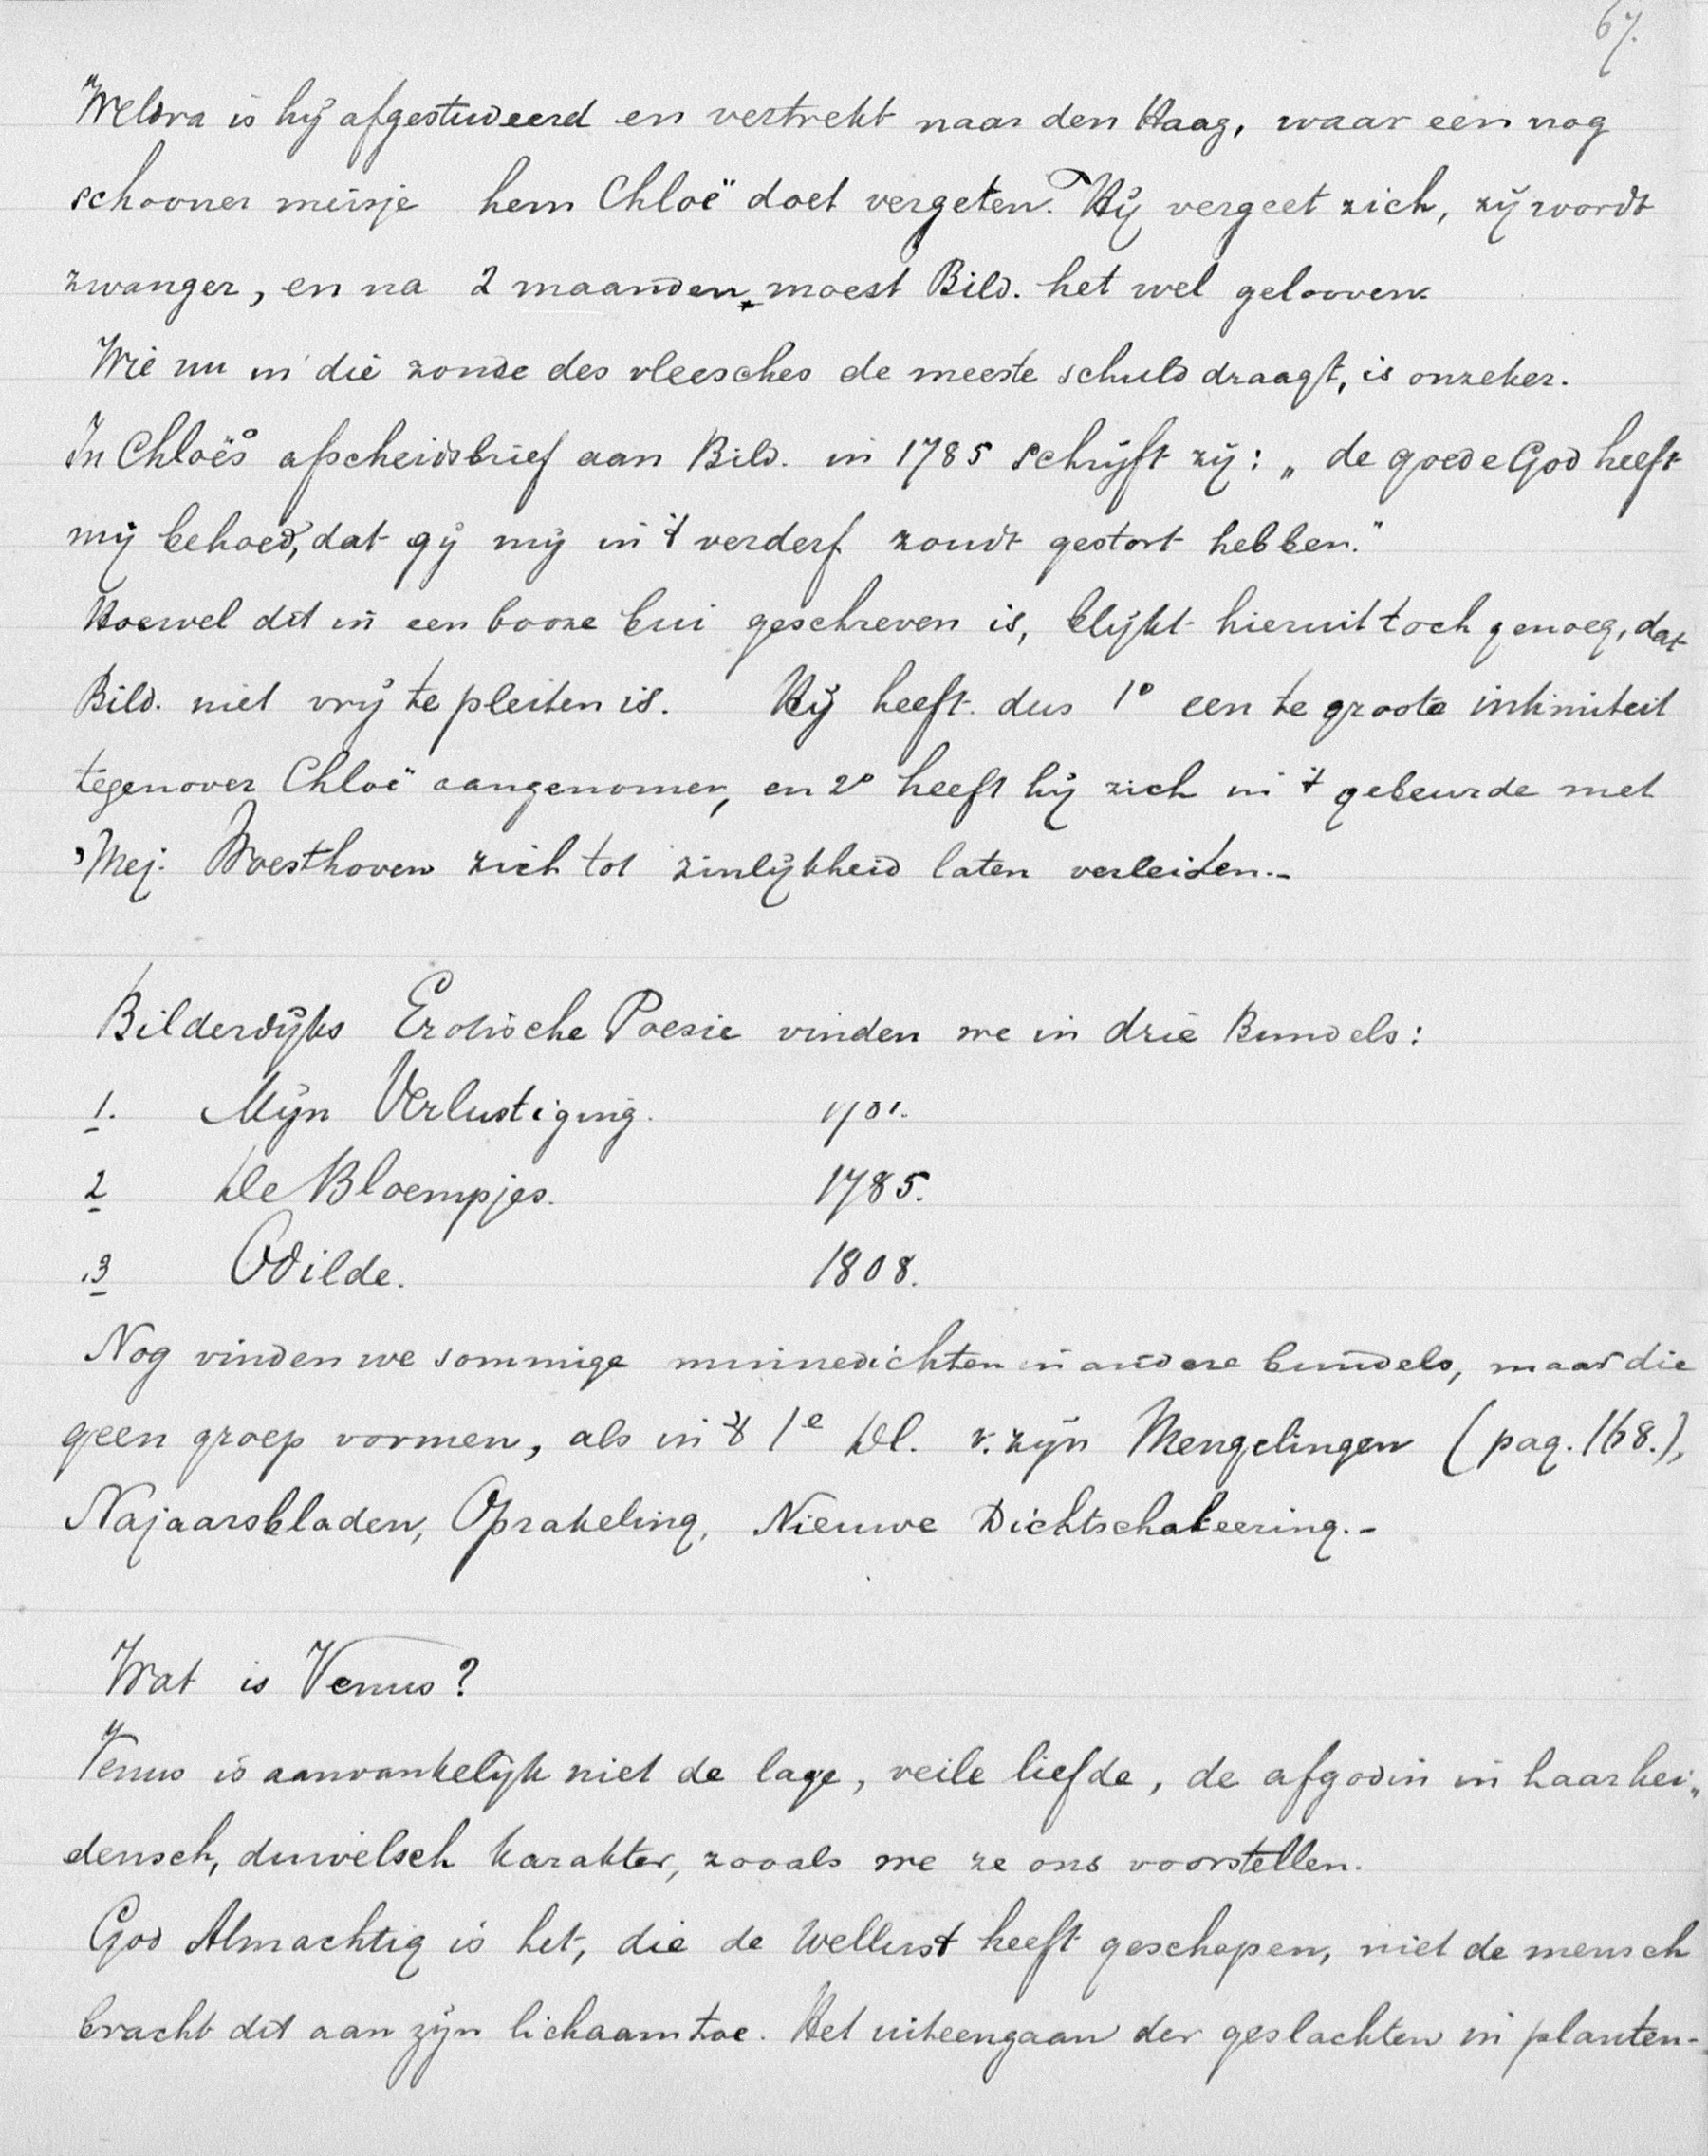 67.
Weldra is hij afgestudeerd en vertrekt naar den Haag, waar een nog
schooner meisje hem Chloë doet vergeten. Hij vergeet zich, zij wordt
zwanger, en na 2 maanden moest Bild. het wel gelooven.
Wie nu in die zonde des vleesches de meeste schuld draagt, is onzeker.
In Chloë's afscheidsbrief aan Bild. in 1785 schrijft zij: „de goede God heeft
mij behoed, dat gij mij in 't verderf zoudt gestort hebben."
Hoewel dit in een booze bui geschreven is, blijkt hieruit toch genoeg, dat
Bild. niet vrij te pleiten is. Hij heeft dus 1° een te groote intimiteit
tegenover Chloë aangenomen, en 2° heeft hij zich in 't gebeurde met
Mej. Woesthoven zich tot zinlijkheid laten verleiden.-
Bilderdijks Erotische Poesie vinden we in drie Bundels:
1. Mijn Verlustiging. 1781.
2 De Bloempjes. 1785.
3 Odilde. 1808.
Nog vinden we sommige minnedichten in andere bundels, maar die
geen groep vormen, als in 't 1e Dl. v. zijn Mengelingen (pag. 168.),
Najaarsbladen, Oprakeling, Nieuwe Dichtschakeering.-
Wat is Venus?
Venus is aanvankelijk niet de lage, veile liefde, de afgodin in haar hei„
densch, duivelsch karakter, zooals we ze ons voorstellen.
God Almachtig is het, die de wellust heeft geschapen, niet de mensch
bracht dit aan zijn lichaam toe. Het uiteengaan der geslachten in planten-